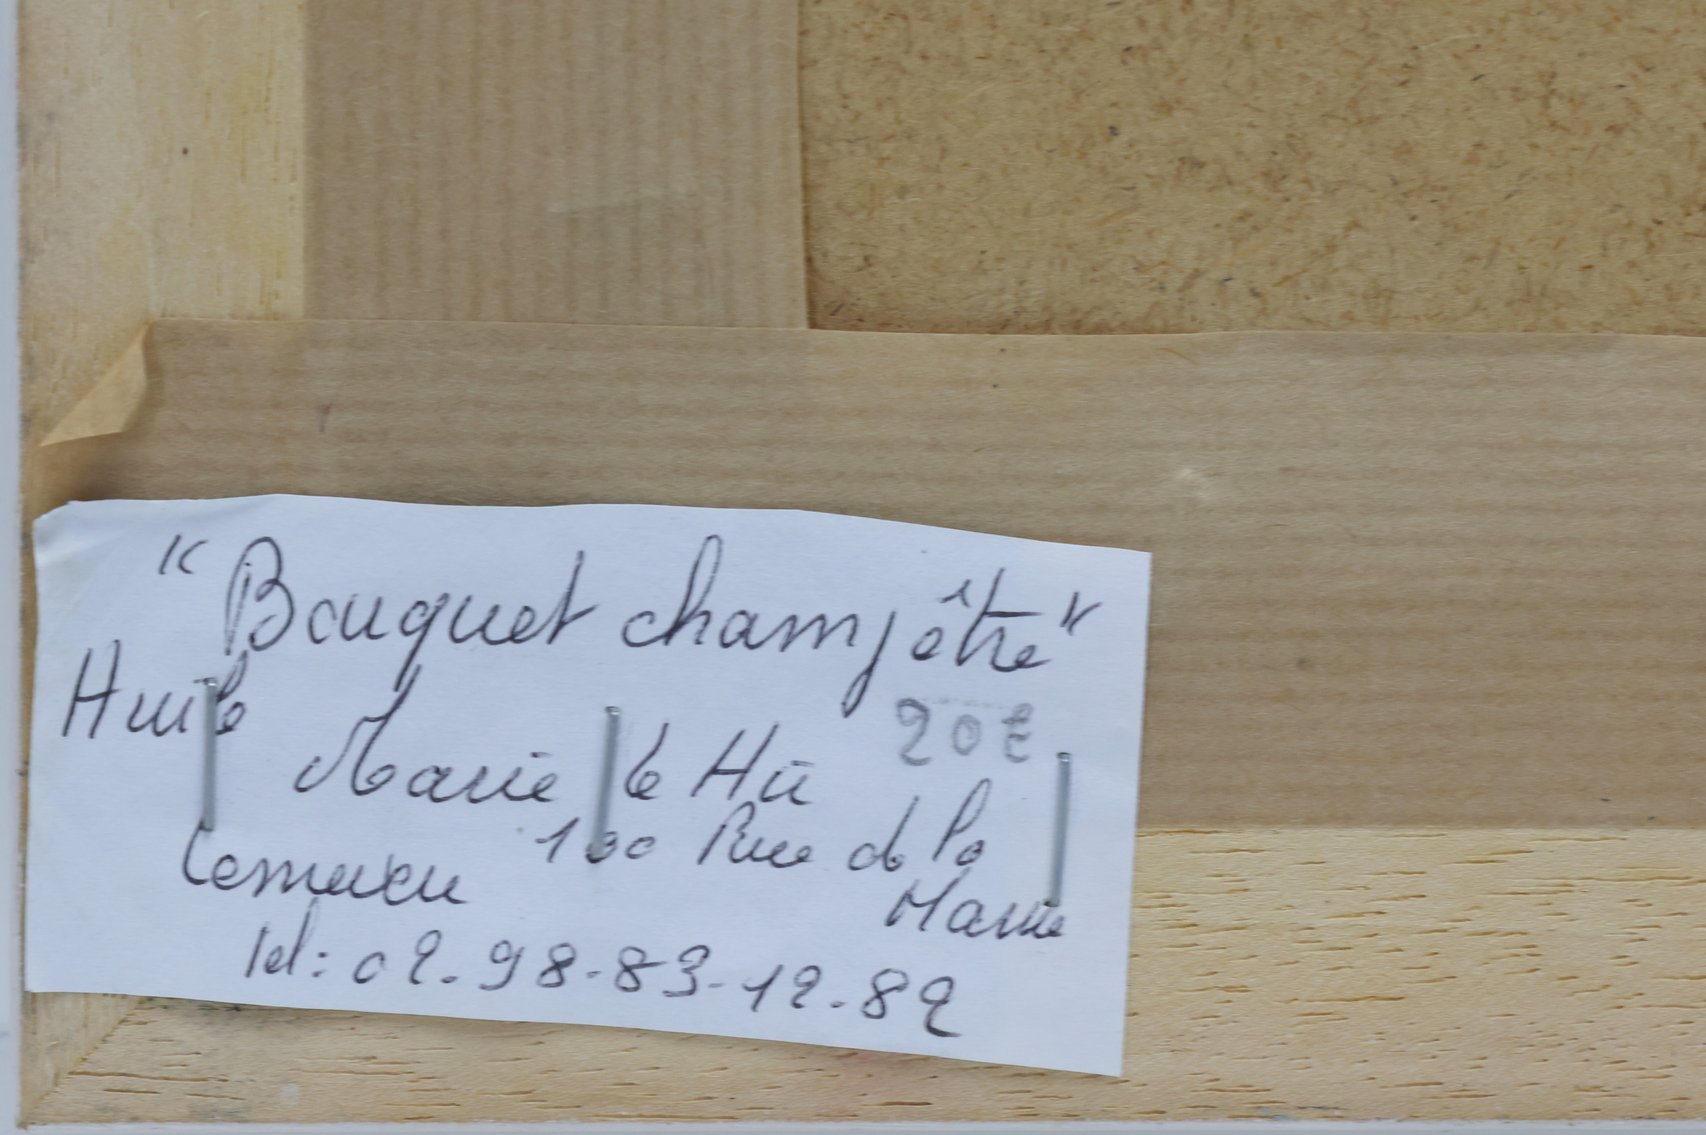 "Bouquet champêtre"
Huile
20€
Marie le Hir
100 Rue de la
Lesneven
Mairie
Tel: 02.98.83.12.82